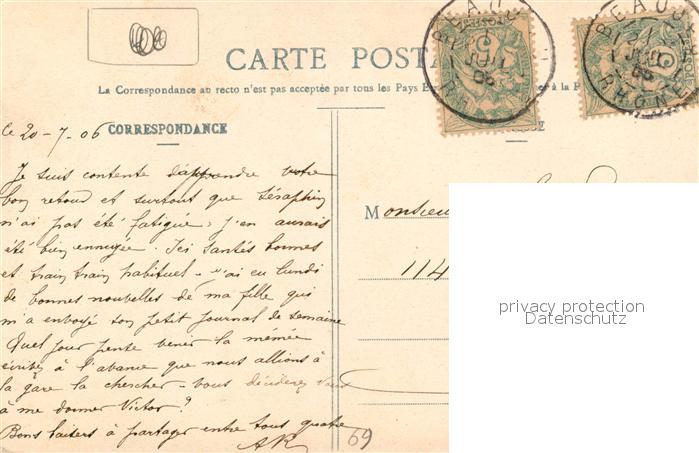 CARTE POSTA
La Correspondance au recto n'est pas acceptée par tous les Pays
à la P
BEAUJ
RHONE
BEAUJ
RHONE
le 20-7-06 CORRESPONDANCE
Je suis contente d'apprendre votre
bon retour et surtout que Séraphin
n'ai pas été fatigué; j'en aurais
été bien ennuyée. Ici santés bonnes
et train train habituel - j'ai eu lundi
de bonnes nouvelles de ma fille qui
m'a envoyé son petit journal de semaine
Quel jour pente vener la mémée
écrivez à l'avance que nous allions à
la gare la chercher - vous déciderez vous
à me donner Victor?
Bons baisers à partager entre tous quatre
AR
69
Monsieur
114
privacy protection
Datenschutz